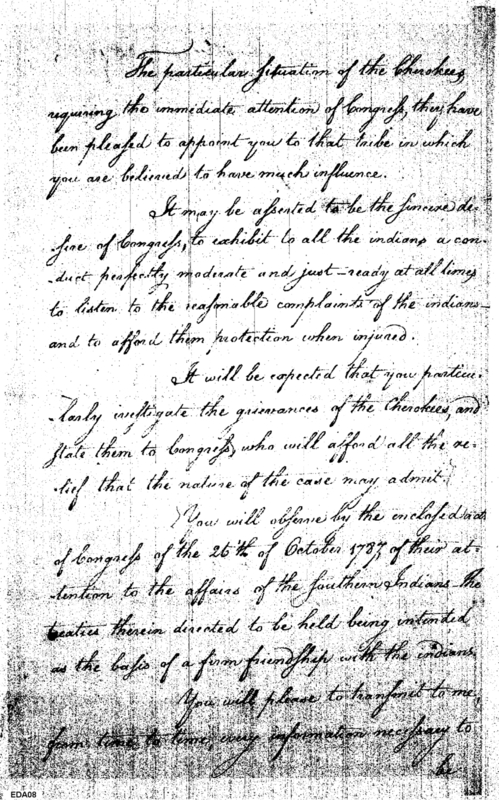 The particular situation of the Cherokees
requiring the immediate attention of Congress, they have
been pleased to appoint you to that tribe in which
you are believed to have much influence.
It may be asserted to be the sincere de-
-sire of Congress, to exhibit to all the indians a con-
-duct perfectly moderate and just - ready at all times
to listen to the reasonable complaints of the indians -
and to afford them protection when injured.
It will be expected that you particu-
-larly investigate the grievances of the Cherokees, and
state them to Congress, who will afford all the re-
-lief that the nature of the case may admit.
You will observe by the inclosed act
of Congress of the 26th of October 1787, of their at-
-tention to the affairs of the southern Indians - the
treaties therein directed to be held being intended
as the basis of a firm friendship with the indians
You will please to transmit to me,
from time to time, every information necessary to
be
EDA08